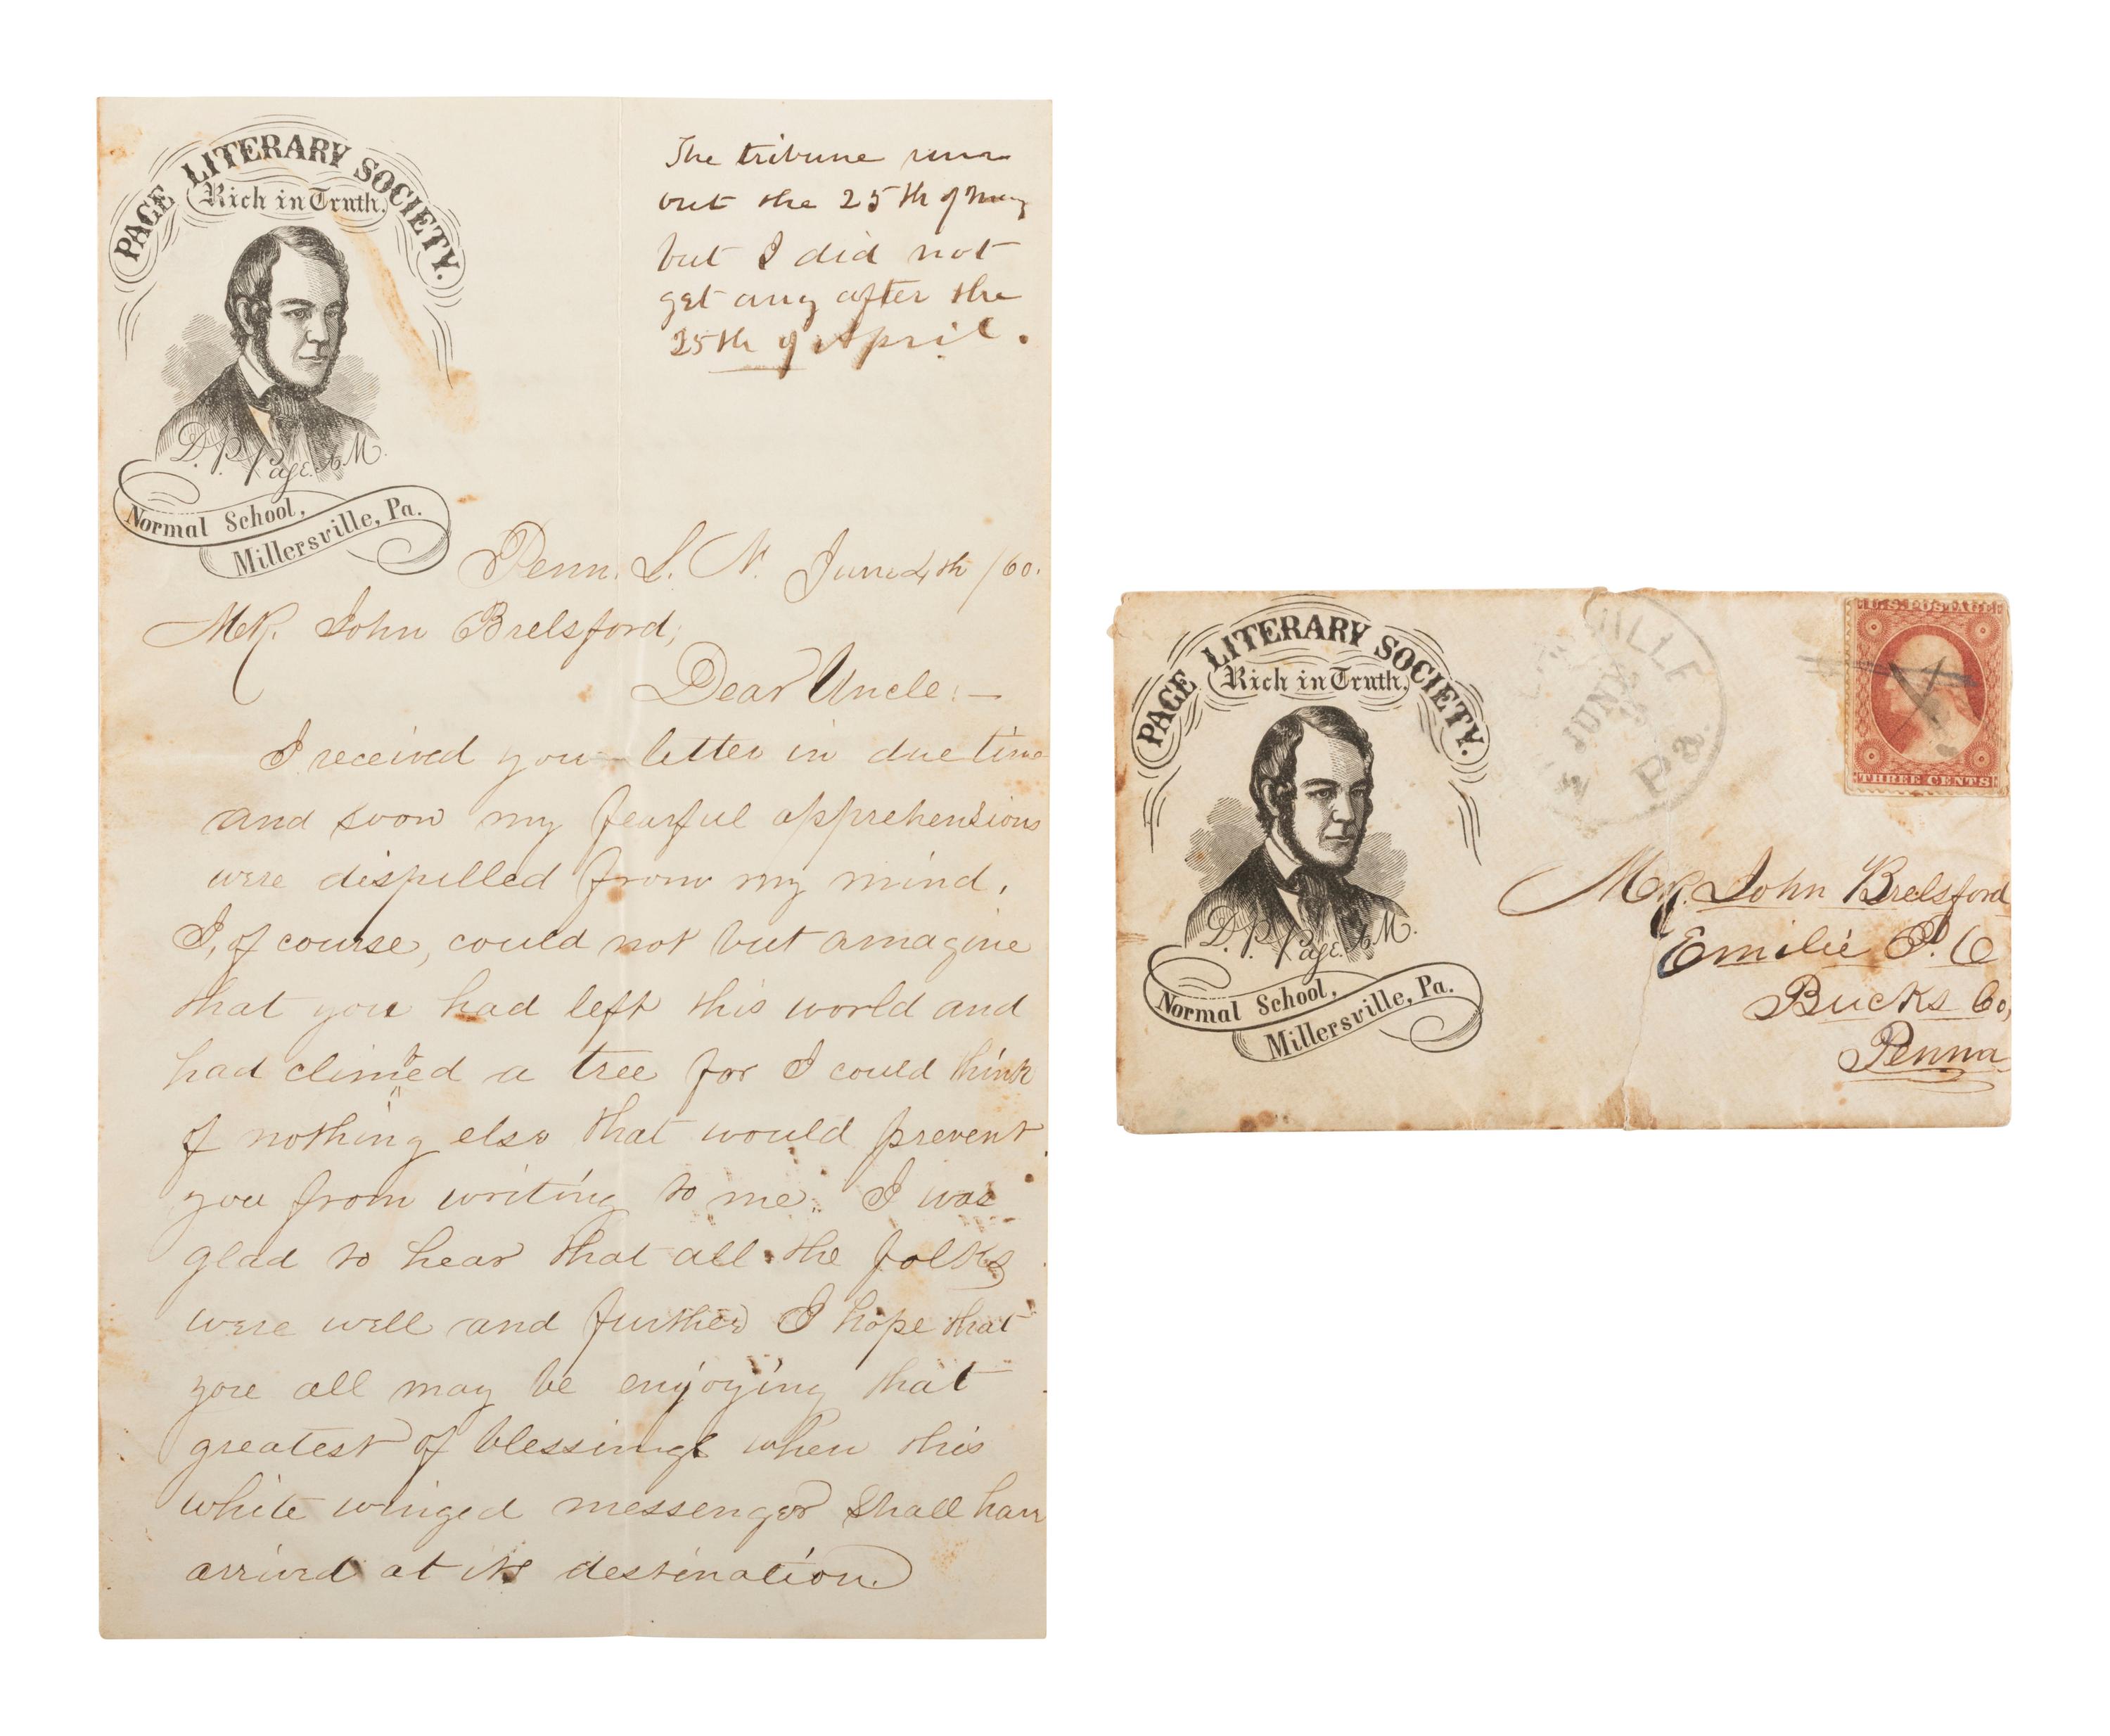 PAGE LITERARY SOCIETY.
Rich in Truth.
D. P. Page. A.M.
Normal School,
Millersville, Pa.
The tribune runs
out the 25th of May
but I did not
get any after the
25th of April.
Penn. S. N. June 4th /60.
MR. John Brelsford,
Dear Uncle: —
I received your letter in due time
and soon my fearful apprehensions
were dispelled from my mind.
I, of course, could not but amagine
that you had left this world and
had climbed a tree for I could think
of nothing else that would prevent
you from writing to me. I was
glad to hear that all the folks
were well and further I hope that
you all may be enjoying that
greatest of blessings when this
white winged messenger shall have
arrived at its destination.
PAGE LITERARY SOCIETY.
Rich in Truth.
D. P. Page. A.M.
Normal School,
Millersville, Pa.
VILLE
JUNE
Pa.
U.S. POSTAGE
THREE CENTS
MR. John Brelsford
Emilie P. O
Bucks Co,
Penna